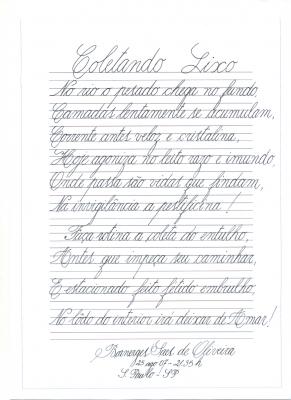 Coletando Lixo
No rio o pesado chega no fundo,
Camadas lentamente se acumulam,
Corrente antes veloz e cristalina,
Hoje agoniza no leito razo e imundo,
Onde passa são vidas que findam,
Na invigilância a pestificina!
Faça rotina a coleta do entulho,
Antes que impeça seu caminhar,
E estacionado feito fétido embrulho,
No lôdo do interior irá deixar de Amar!
de Oliveira
25 ago 07 - 21:35 h
S. Paulo - SP